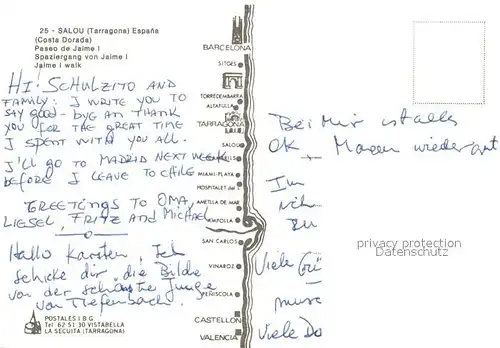 25 - SALOU (Tarragona) España
(Costa Dorada)
Paseo de Jaime I
Spaziergang von Jaime I
Jaime I walk
HI! SCHULZITO AND
FAMILY: I WRITE YOU TO
SAY GOOD-BYE AN THANK
YOU FOR THE GREAT TIME
I SPENT WITH YOU ALL.
I'LL GO TO MADRID NEXT WEEK
BEFORE I LEAVE TO CHILE
GREETINGS TO OMA,
LIESEL, FRITZ AND MICHAEL
Hallo Karsten, Ich
schicke dir "die Bilde
von der schönste Junge
von Tiefenbach".
POSTALES I B G
Tel 62 51 30 VISTABELLA
LA SECUITA (TARRAGONA)
BARCELONA
SITGES
TORREDEMBARRA
ALTAFULLA
TARRAGONA
SALOU
MIAMI-PLAYA
HOSPITALET del
AMETLLA DE MAR
AMPOLLA
SAN CARLOS
VINAROZ
PEÑISCOLA
CASTELLON
VALENCIA
Bei Mir ist alles
OK
Im
zu
privacy protection
Datenschutz
Viele
Viele